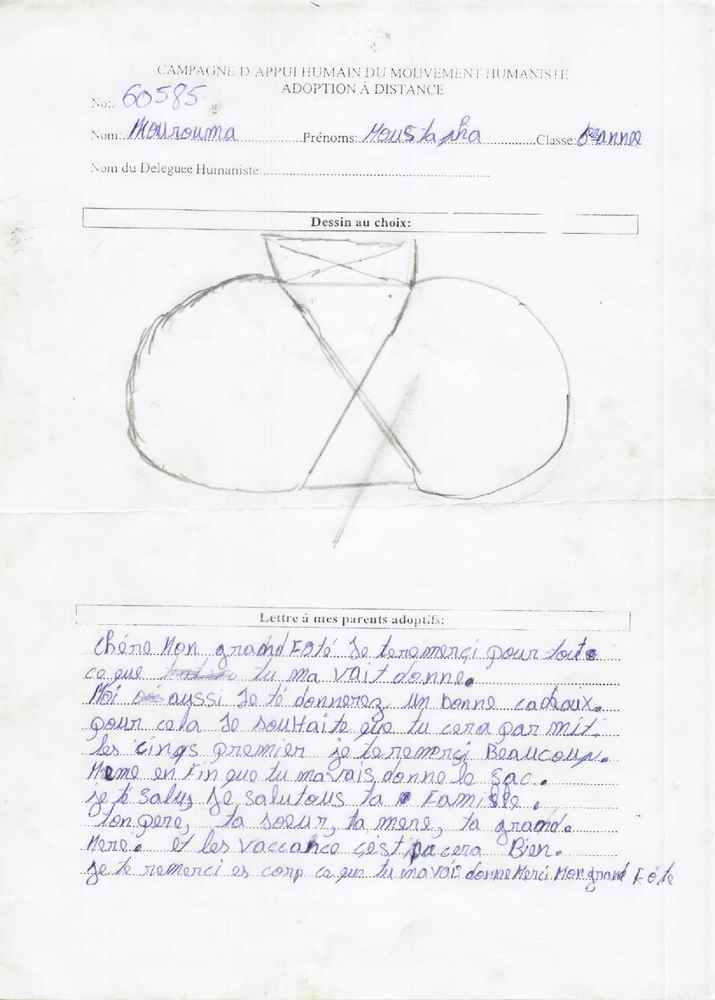 CAMPAGNE D'APPUI HUMAIN DU MOUVEMENT HUMANISTE
ADOPTION À DISTANCE
No:. 60585
Nom: Mourouma Prénoms: Moustapha Classe
Nom du Deleguee Humaniste
Dessin au choix:
Lettre à mes parents adoptifs:
chére Mon grand Foté Je teremerci pour tout
ce que tu ma vait donne.
Moi aussi Je té donnerez un bonne cadeaux.
pour cela Je souhaite que tu cera par mit.
les cinqs premier je teremerci Beaucoup.
Meme en Fin que tu mavais donne le Sac.
je te Salus Je salutous ta Famille.
ton pere, ta soeur, ta mere, ta grand.
Mere. et les vaccance cera Bien.
Je te remerci ce que tu mavais donne Merci Mon grand Foté